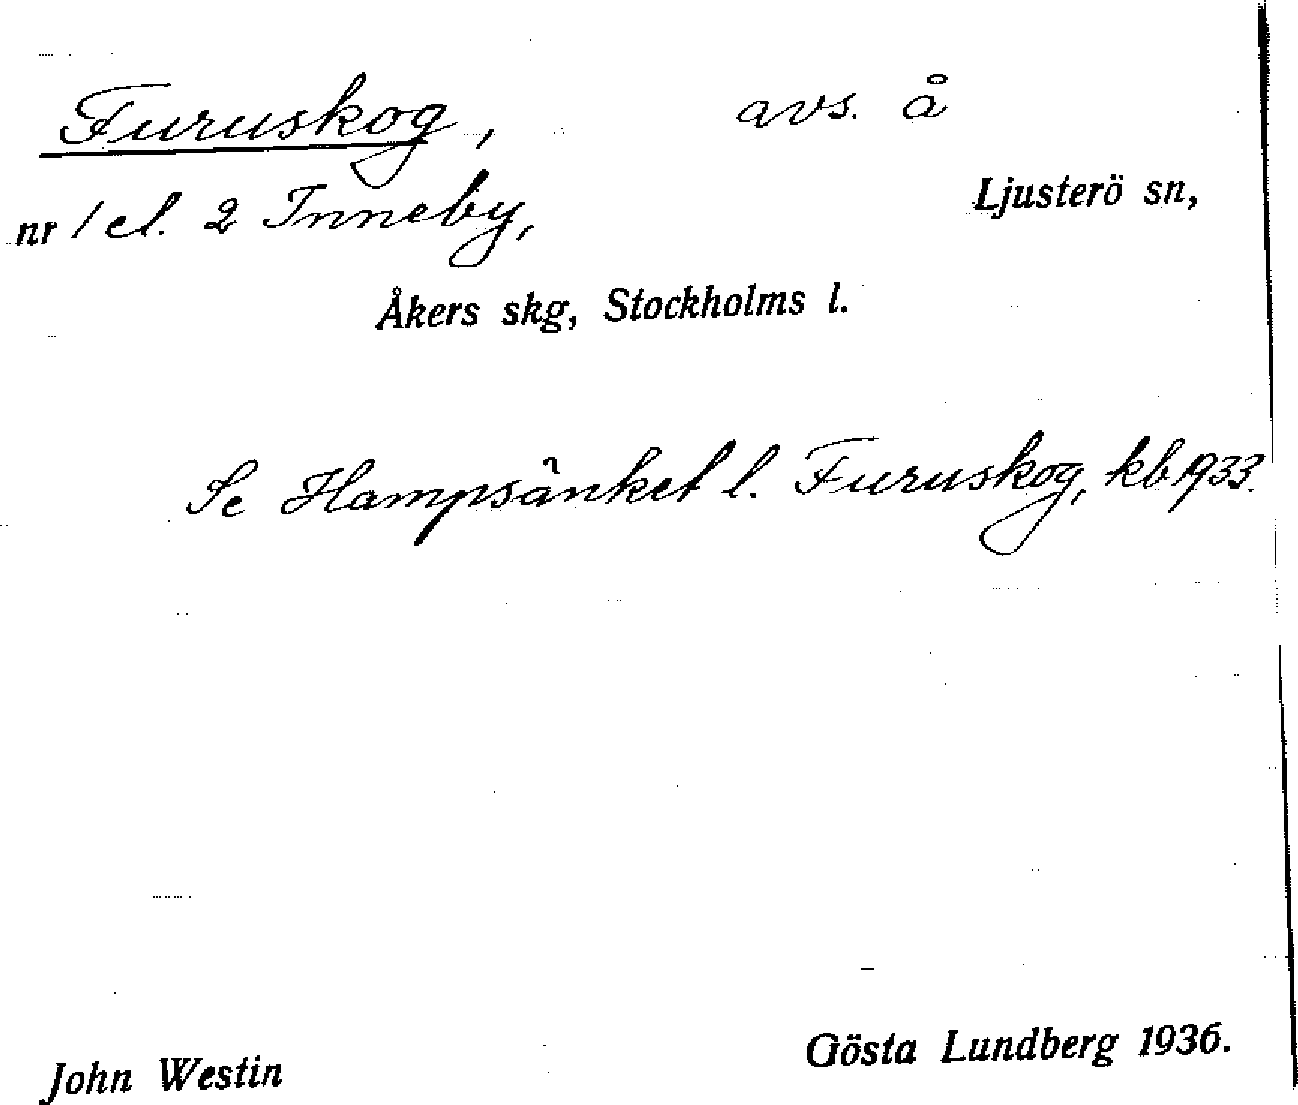 Furuskog, avs. å
Ljusterö sn,
nr 1 el. 2 Inneby,
Åkers skg, Stockholms l.
Se Hampsänket l. Furuskog, kb. 1933.
John Westin Gösta Lundberg 1936.